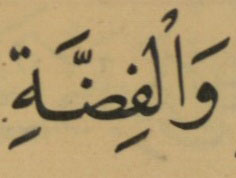 وَاْلفِضَّةِ